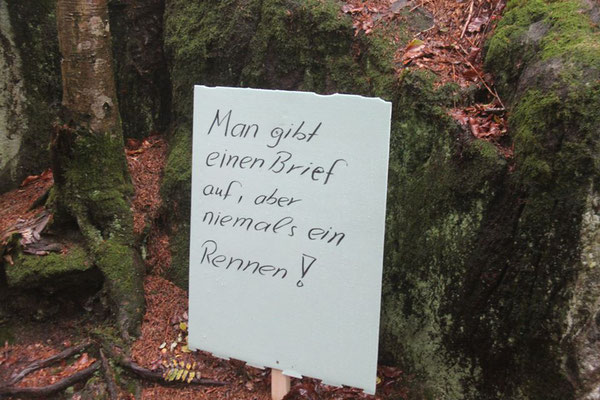 Man gibt
einen Brief
auf, aber
niemals ein
Rennen!